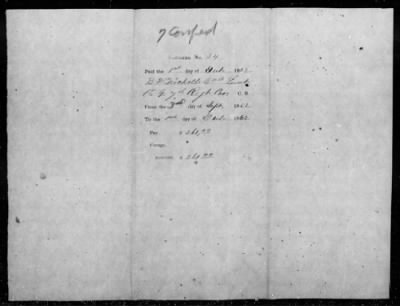 7 Confed
Voucher No. 34
Paid the 1st day of 186
D. F. Nicholls 2nd Lieut
Co. G. 7th Regt C. S.
From the 3rd day of Sept. 1862
To the day of 1862
Pay $ 261,00
Forage,
Amount, $ 261,00